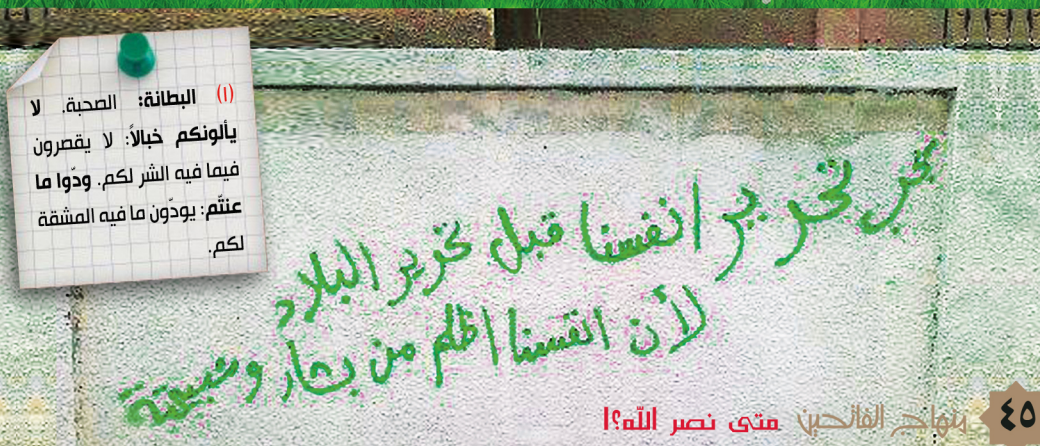 (١) البطانة: الصحبة. لا
يألونكم خبالاً: لا يقصرون
فيما فيه الشر لكم. ودّوا ما
عنتّم: يودّون ما فيه المشقة
لكم.
تحرير انفسنا قبل تحرير البلاد
لأن انفسنا اظلم من بشار وشبيحته
٤٥ منهاج الفاتحين متى نصر الله؟!